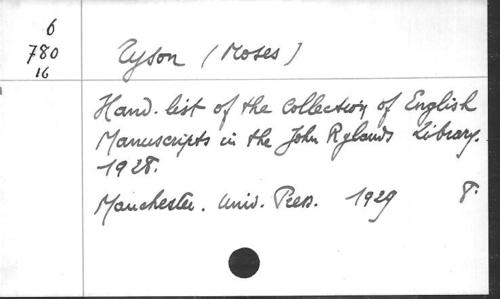 6
780
16
Tyson (Moses)
Hand. list of the Collection of English
Manuscripts in the John Rylands Library.
1928.
Manchester. Univ. Press. 1929 8°.